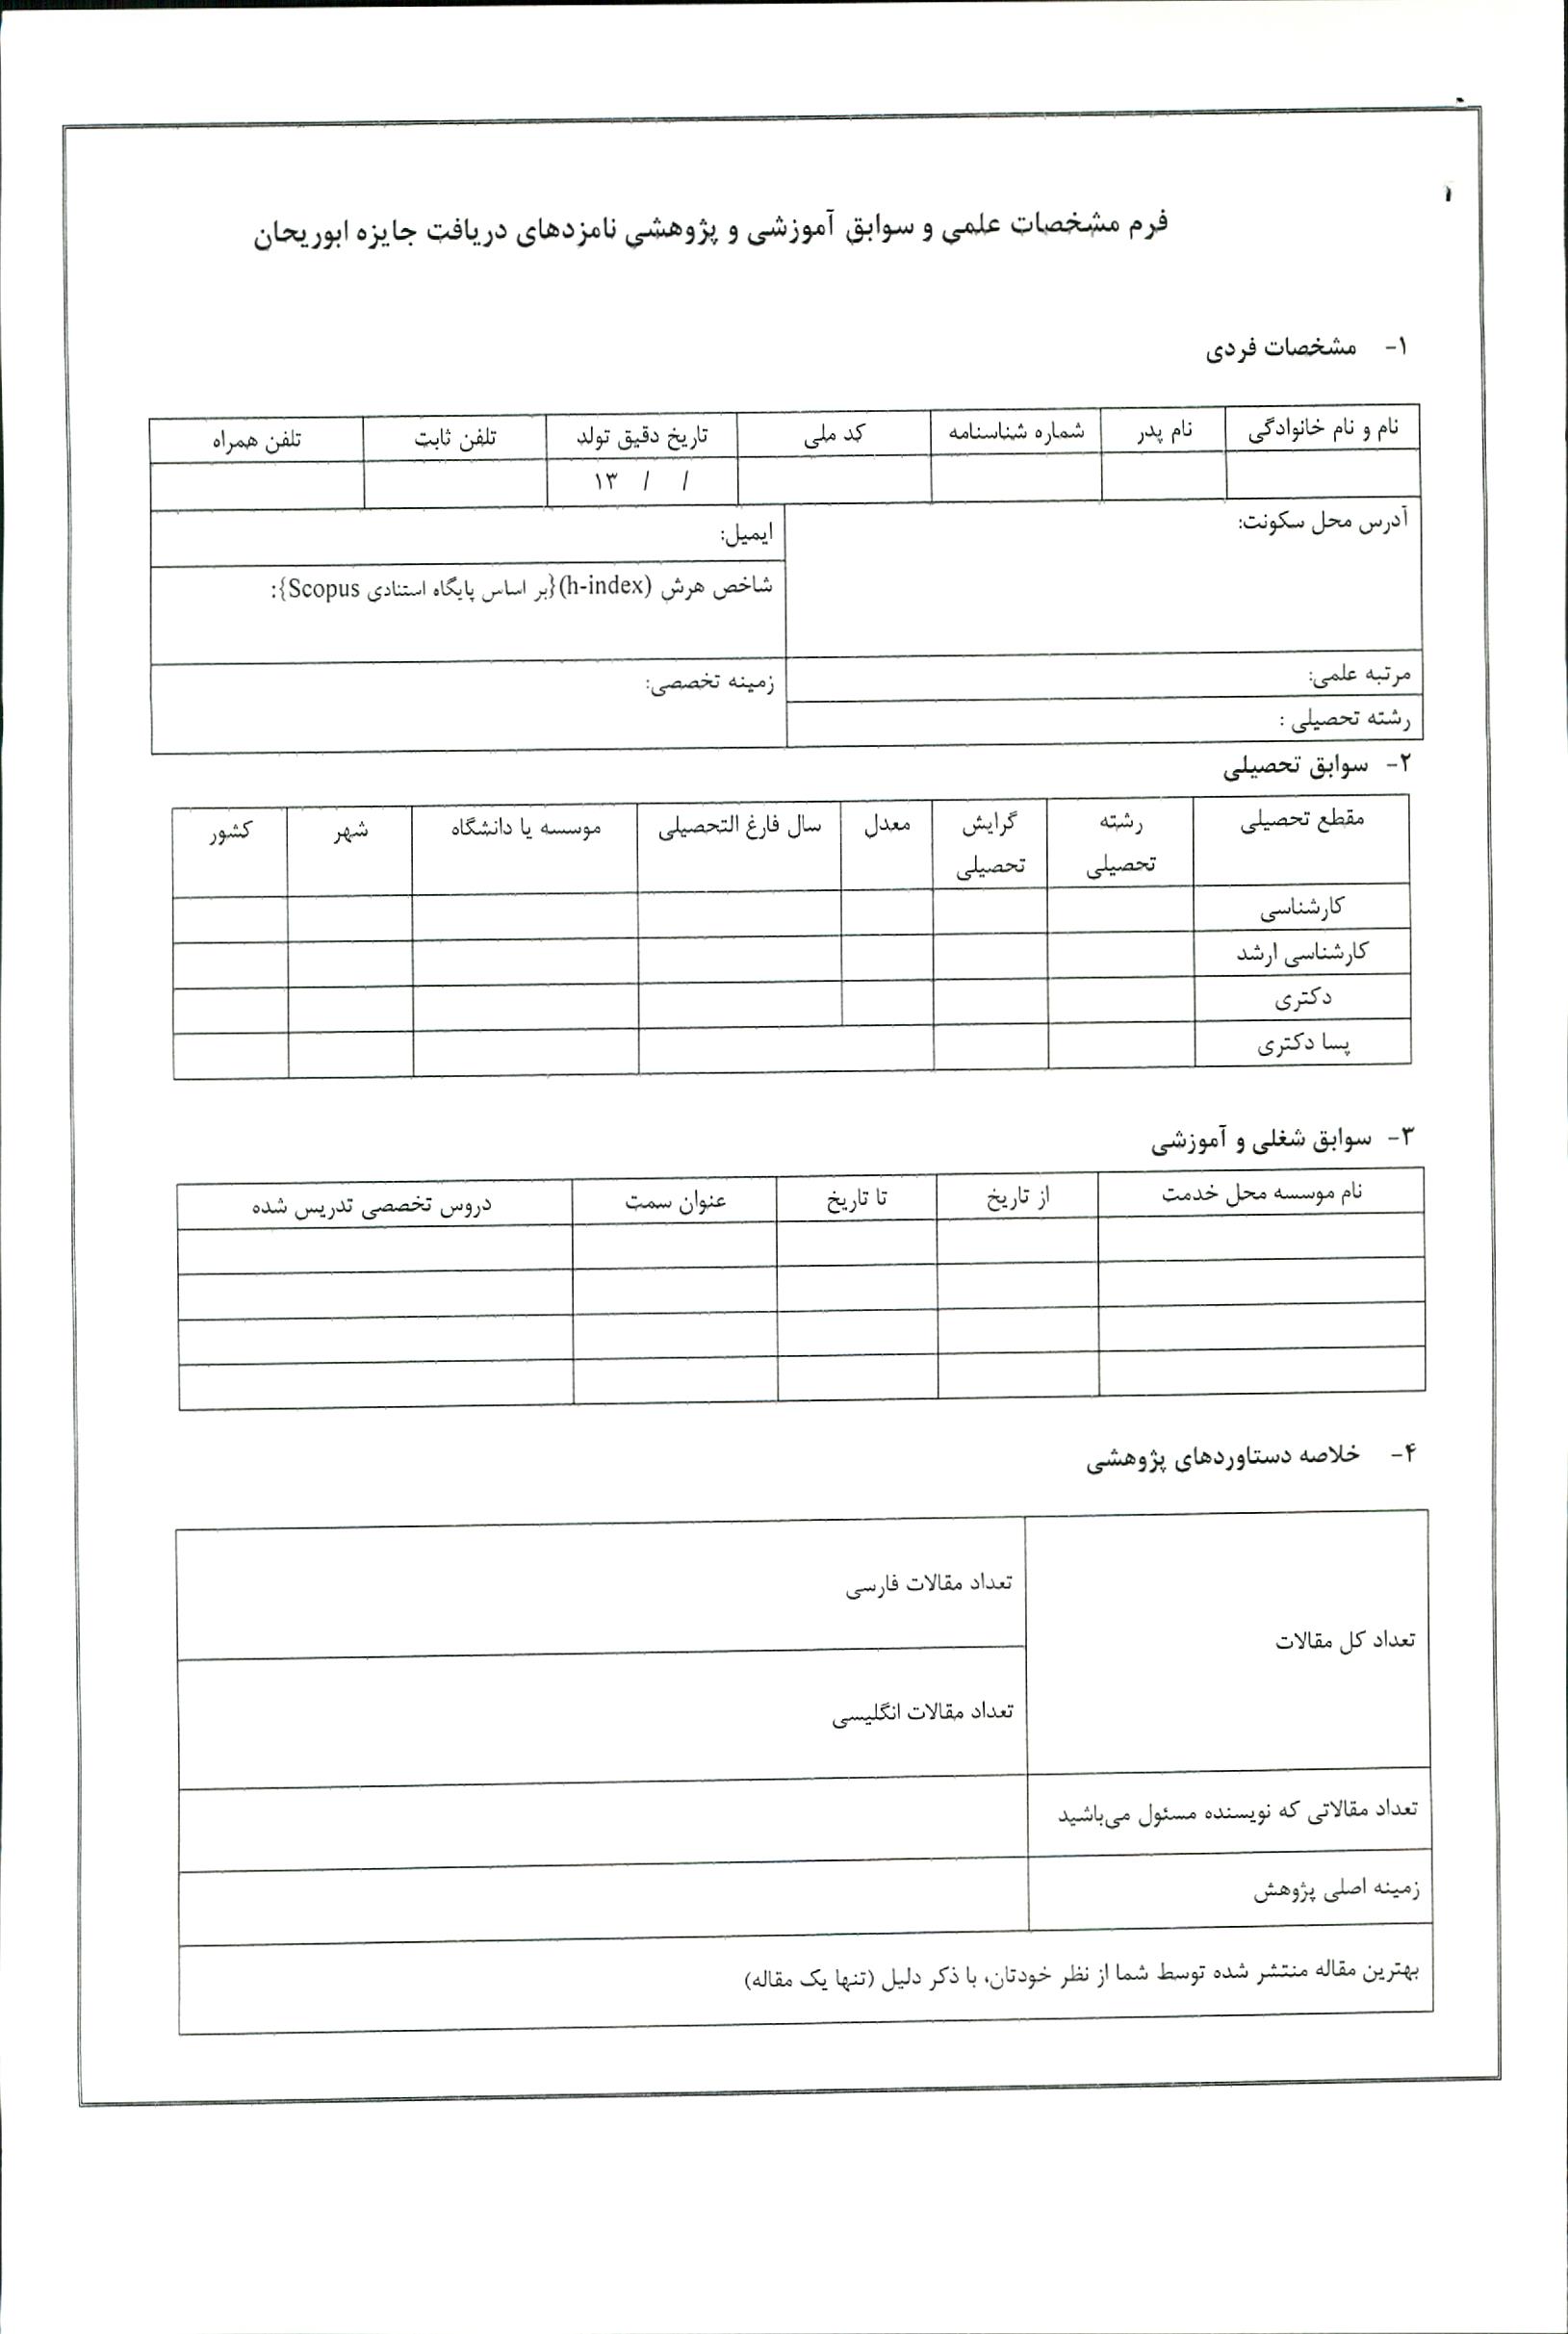 فرم مشخصات علمی و سوابق آموزشی و پژوهشی نامزدهای دریافت جایزه ابوریحان
۱- مشخصات فردی
نام و نام خانوادگی نام پدر شماره شناسنامه کد ملی تاریخ دقیق تولد تلفن ثابت تلفن همراه
/ / ۱۳
آدرس محل سکونت:
ایمیل:
شاخص هرش (h-index){بر اساس پایگاه استنادی Scopus}:
مرتبه علمی:
زمینه تخصصی:
رشته تحصیلی :
۲- سوابق تحصیلی
مقطع تحصیلی رشته تحصیلی گرایش تحصیلی معدل سال فارغ التحصیلی موسسه یا دانشگاه شهر کشور
کارشناسی
کارشناسی ارشد
دکتری
پسا دکتری
۳- سوابق شغلی و آموزشی
نام موسسه محل خدمت از تاریخ تا تاریخ عنوان سمت دروس تخصصی تدریس شده
۴- خلاصه دستاوردهای پژوهشی
تعداد کل مقالات
تعداد مقالات فارسی
تعداد مقالات انگلیسی
تعداد مقالاتی که نویسنده مسئول می‌باشید
زمینه اصلی پژوهش
بهترین مقاله منتشر شده توسط شما از نظر خودتان، با ذکر دلیل (تنها یک مقاله)